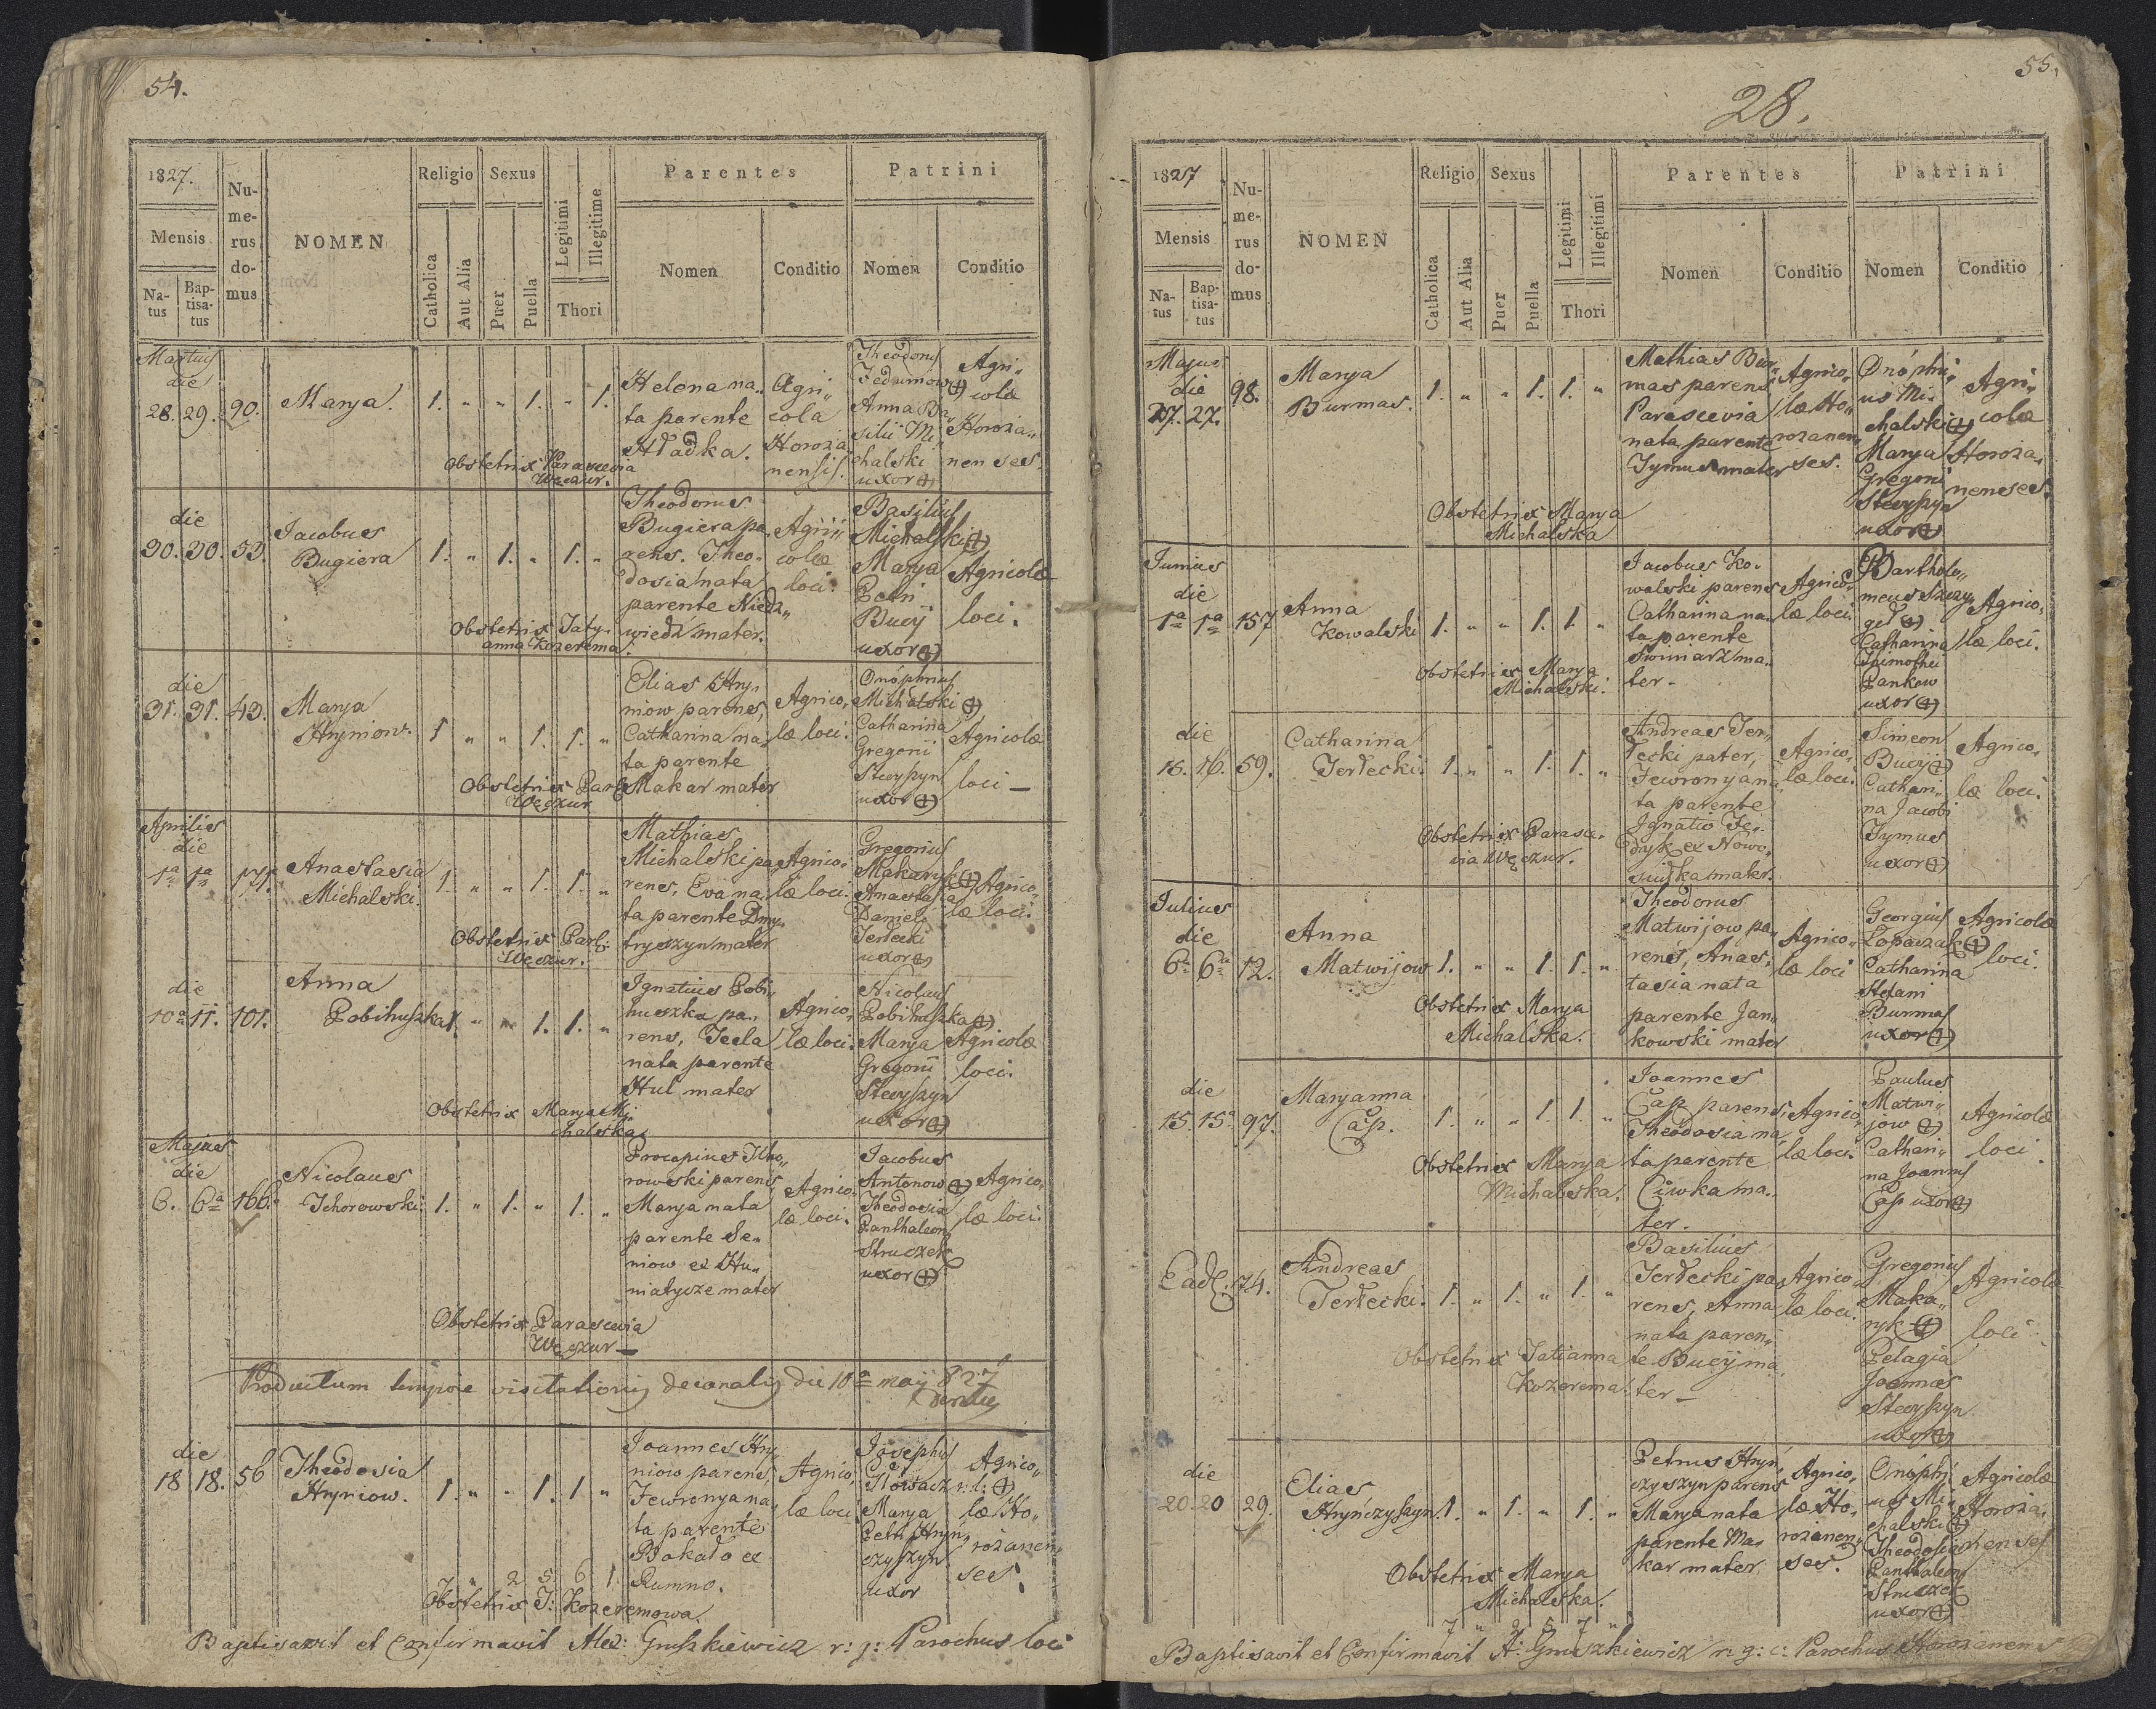 54.
1827.
Nu-
me-
rus
do-
mus
NOMEN
Religio
Sexus
Legitimi
Illegitime
Parentes
Patrini
Mensis
Na-
tus
Bap-
tisa-
tus
Catholica
Aut Alia
Puer
Puella
Thori
Nomen
Conditio
Nomen
Conditio
Martius
die
28. 29. 90. Marya. 1. " " 1. " 1.
Helena na,,
ta parente
Hładka.
Agri,,
cola
Horoża
nensis.
Theodorus
Feduniow
Anna Ba,,
silii Mi,,
chalski
uxor
Agri,,
colæ
Horoża,,
nenses.
Obstetrix Parascevia
Węczur.
die
30. 30. 53. Jacobus
Bugiera 1. " 1. " 1. "
Theodorus
Bugiera pa,
rens. Theo,
dosia nata
parente Niedz,,
wiedź mater.
Agri,,
colæ
loci.
Basilius
Michalski
Marya
Petri
Bucÿ
uxor
Agricolæ
loci.
Obstetrix Taty,
anna Kozerema.
die
31. 31. 43. Marya
Hryniow. 1 " " 1. 1. "
Elias Hry,
niow parens,
Catharina na,
ta parente
Makar mater
Agrico,
læ loci.
Onóphrius
Michalski
Catharina
Gregorii
Stecyszyn
uxor
Agricolæ
loci —
Obstetrix Par:
Węczur
Aprilis
die
1ª 1ª 171. Anastasia
Michalski. 1. " " 1. 1. "
Mathias
Michalski pa,
rens, Eva na,
ta parente Dmy,
tryszyn mater
Agrico,
læ loci.
Gregorius
Makaryk
Anastasia
Daniel
Terlecki
uxor
Agrico,
læ loci.
Obstetrix Par:
Węczur.
die
10ª 11. 101. Anna
Pobihuszka 1. " " 1. 1. "
Ignatius Pobi,
huszka pa,,
rens, Tecla
nata parente
Hul mater
Agrico,
læ loci.
Nicolaus
Pobihuszka
Marya
Gregorii
Stecyszyn
uxor
Agricolæ
loci.
Obstetrix Marya Mi,
chalska.
Majus
die
6. 6ª 166. Nicolaus
Tchorowski. 1. " 1. " 1. "
Procopius Tcho,,
rowski parens,
Marya nata
parente Se,,
niow ex Hu,,
niatycze mater
Agrico,
læ loci.
Jacobus
Antonow
Theodosia
Panthaleon
Struczek
uxor
Agrico,
læ loci.
Obstetrix Parascevia
Węczur —
Productum tempore visitationis decanalis die 10ª maij 827
die
18 18. 56 Theodosia
Hryniow. 1. " " 1. 1 "
Joannes Hry
niow parens,
Fewronya na,
ta parente
Bokało ex
Rumno.
Agrico,
læ loci
Josephus
Marya
Petri Hryń,
czyszyn
uxor
Agrico,,
læ Ho,,
rożanen,
ses
7 " 2 5 6 1.
Obstetrix T: Kozeremowa.
Baptisavit et Confirmavit Alex: Gruszkiewicz r: g: Parochus loci
55.
28.
1827
Nu-
me-
rus
do-
mus
NOMEN
Religio
Sexus
Legitimi
Illegitimi
Parentes
Patrini
Mensis
Na-
tus
Bap-
tisa-
tus
Catholica
Aut Alia
Puer
Puella
Thori
Nomen
Conditio
Nomen
Conditio
Majus
die
27. 27. 98. Marya
Burmas. 1. " " 1. 1. "
Mathias Bur,,
mas parens
Parascevia
nata parente
Tymus mater
Agrico,,
læ Ho,,
rozanen,
ses.
Onóphri,
us Mi,
chalski
Marya
Gregorii
Stecyszyn
uxor
Agri,,
colæ
Horoża,
nenses.
Obstetrix Marya
Michalska
Junius
die
1ª 1ª 157 Anna
Kowalski 1. " " 1. 1. "
Jacobus Ko,
walski parens
Catharina na,
ta parente
Świniarz ma,
ter —
Agrico,
læ loci.
Bartholo,,
meus Szczy,
gieł
Catharina
Thimothei
Pankow
uxor
Agrico,
læ loci.
Obstetrix Marya
Michalski.
die
16. 16. 59. Catharina
Terlecki. 1. " " 1. 1. "
Andreas Ter,
lecki pater,
Fewronya na,
ta parente
Ignatio Fe,
dyk ex Nowo,
siułka mater.
Agrico,
læ loci.
Simeon
Bucÿ
Cathari,,
na Jacobi
Tymus
uxor
Agrico,
læ loci.
Obstetrix Parasce,
via Węczur.
Julius
die
6ª 6ª 12. Anna
Matwijow 1. " " 1. 1. "
Theodorus
Matwijow pa,
rens, Anas,
tasia nata
parente Jan,
kowski mater
Agrico,
læ loci
Georgius
Łopaczak
Catharina
Stefani
Burmas
uxor
Agricolæ
loci.
Obstetrix Marya
Michalska.
die
15. 15ª 97. Maryanna
Cap. 1. " " 1. 1. "
Joannes
Cap parens,
Theodosia na,
ta parente
Ciwka ma,
ter —
Agrico,
læ loci.
Paulus
Matwi,,
jow
Cathari,,
na Joannis
Cap uxor
Agricolæ
loci.
Obstetrix Marya
Michalska.
Ead. 74. Andreas
Terlecki. 1. " 1. " 1. "
Basilius
Terlecki pa,
rens, Anna
nata paren,,
te Bucÿ ma,
ter —
Agrico,
læ loci.
Gregorius
Maka,,
ryk
Pelagia
Joannes
Stecyszyn
uxor
Agricolæ
loci.
Obstetrix Tatianna
Kozerema.
die
20. 20 29. Elias
Hryńczyszyn. 1. " 1. " 1. "
Petrus Hryń,
czyszyn parens
Marya nata
parente Ma,
kar mater
Agrico,
læ Ho,
rozanen,
ses.
Onóphri,
us Mi,
chalski
Theodosia
Panthaleon
Struczek
uxor
Agricolæ
Horoża,
nenses
Obstetrix Marya
Michalska.
7 " 2 5 7 "
Baptisavit et Confirmavit A: Gruszkiewicz r: g: c: Parochus Horozanensis